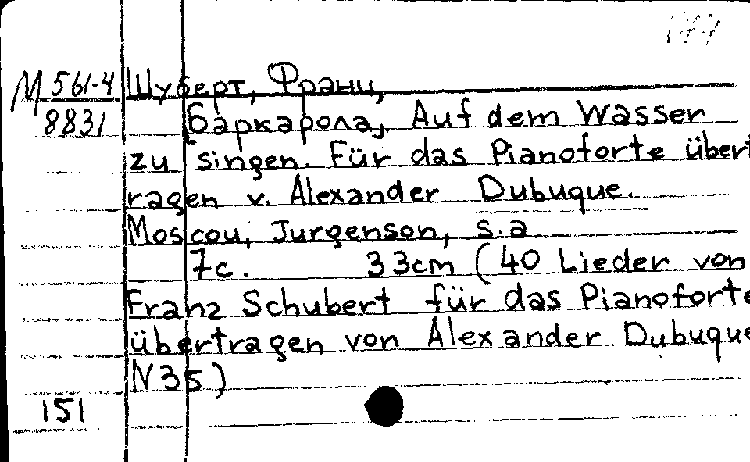 М 561-4
8831
Шуберт, Франц,
[Баркарола, Auf dem Wasser
zu singen. Für das Pianoforte über
ragen v. Alexander Dubuque.
Moscou, Jurgenson, s.a
7c. 33cm (40 Lieder von
Franz Schubert für das Pianoforte
übertragen von Alexander Dubuque
N35)
151